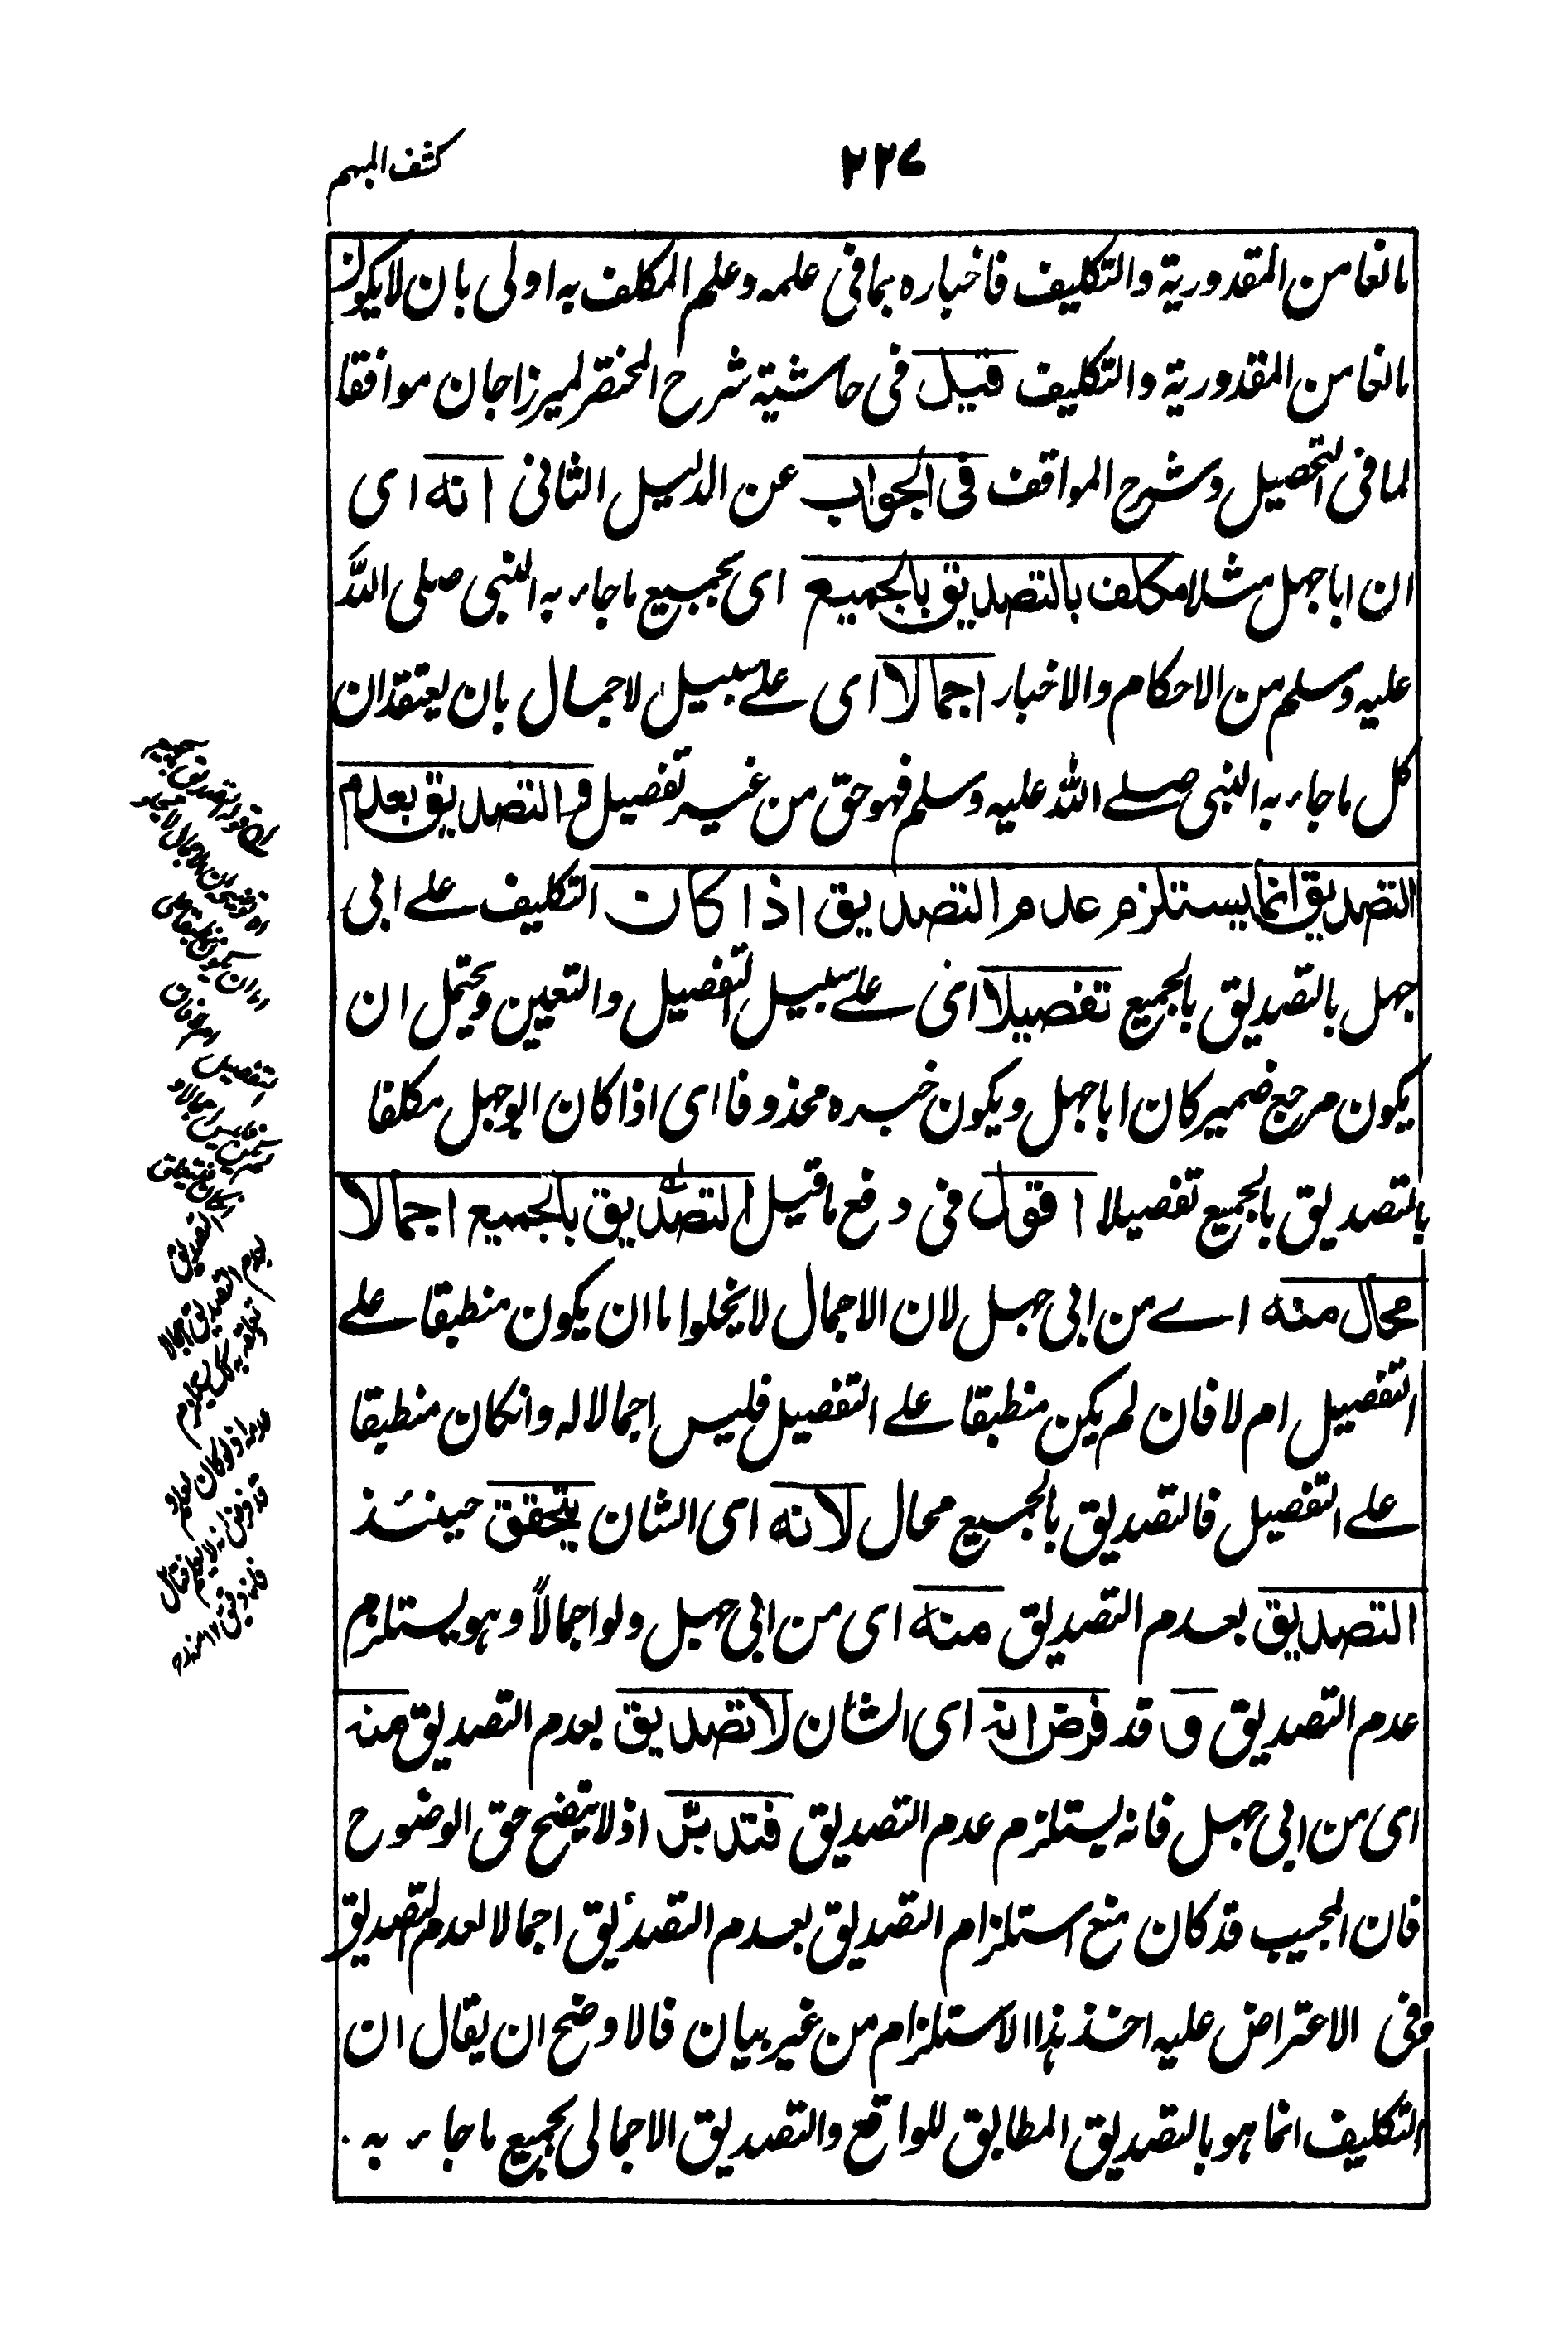 ٢٢٧
كشف المبهم
مانعا من المقدورية والتكليف فاخباره بما فى علمه وعلم المكلف به اولى بان لا يكون
مانعا من المقدورية والتكليف قيل فى حاشية شرح المختصر لميرزا جان موافقا
لما فى التحصيل وشرح المواقف فى الجواب عن الدليل الثانى انه اى
ان ابا جهل مثلا مكلف بالتصديق بالجميع اى بجميع ما جاء به النبى صلى الله
عليه وسلم من الاحكام والاخبار اجمالا اى على سبيل لاجمال بان يعتقد ان
كل ما جاء به النبى صلے الله عليه وسلم فهو حق من غير تفصيل و التصديق بعدم
التصديق انما يستلزم عدم التصديق اذا كان التكليف علے ابى
جهل بالتصديق بالجميع تفصيلا اى علے سبيل التفصيل والتعيين ويحتمل ان
يكون مرجع ضمير كان ابا جهل ويكون خبره محذوفا اى اذا كان ابو جهل مكلفا
بالتصديق بالجميع تفصيلا اقول فى دفع ما قيل التصديق بالجميع اجمالا
محال منه اے من ابى جهل لان الاجمال لا يخلوا ما ان يكون منطبقا علے
التفصيل ام لا فان لم يكن منطبقا علے التفصيل فليس اجمالا له وانكان منطبقا
علے التفصيل فالتصديق بالجميع محال لانه اى الشان يتحقق حينئذ
التصديق بعدم التصديق منه اى من ابى جهل ولو اجمالاً وهو يستلزم
عدم التصديق و قد فرض انه اى الشان لا تصديق بعدم التصديق منه
اى من ابى جهل فانه يستلزم عدم التصديق فتدبر اذ لا يتضح حق الوضوح
فان المجيب قد كان منع استلزام التصديق بعدم التصديق اجمالا لعدم التصديق
وفى الاعتراض عليه اخذ هذا الاستلزام من غير بيان فالاوضح ان يقال ان
التكليف انما هو بالتصديق المطابق للواقع والتصديق الاجمالى بجميع ما جاء به
لتفصيل
التصديق
بعدم التصديق اجمالا